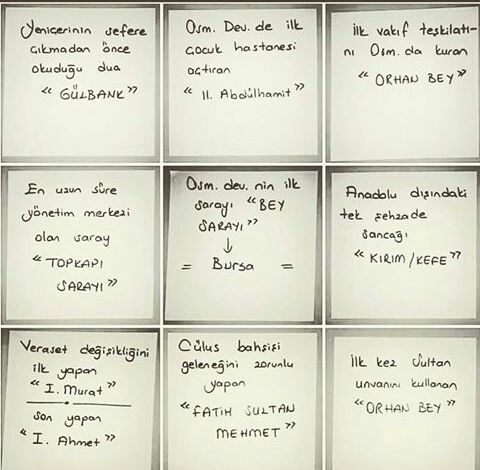 Yeniçerinin sefere
çıkmadan önce
okuduğu dua
"GÜLBANK"
Osm. Dev. de ilk
çocuk hastanesi
açtıran
"II. Abdülhamit"
İlk vakıf teşkilatı-
nı Osm. da kuran
"ORHAN BEY"
En uzun süre
yönetim merkezi
olan saray
"TOPKAPI
SARAYI"
Osm. dev. nin ilk
sarayı "BEY
SARAYI"
↓
= Bursa =
Anadolu dışındaki
tek şehzade
sancağı
"KIRIM/KEFE"
Veraset değişikliğini
ilk yapan
"I. Murat"
son yapan
"I. Ahmet"
Cülus bahşişi
geleneğini zorunlu
yapan
"FATİH SULTAN
MEHMET"
İlk kez Sultan
unvanını kullanan
"ORHAN BEY"